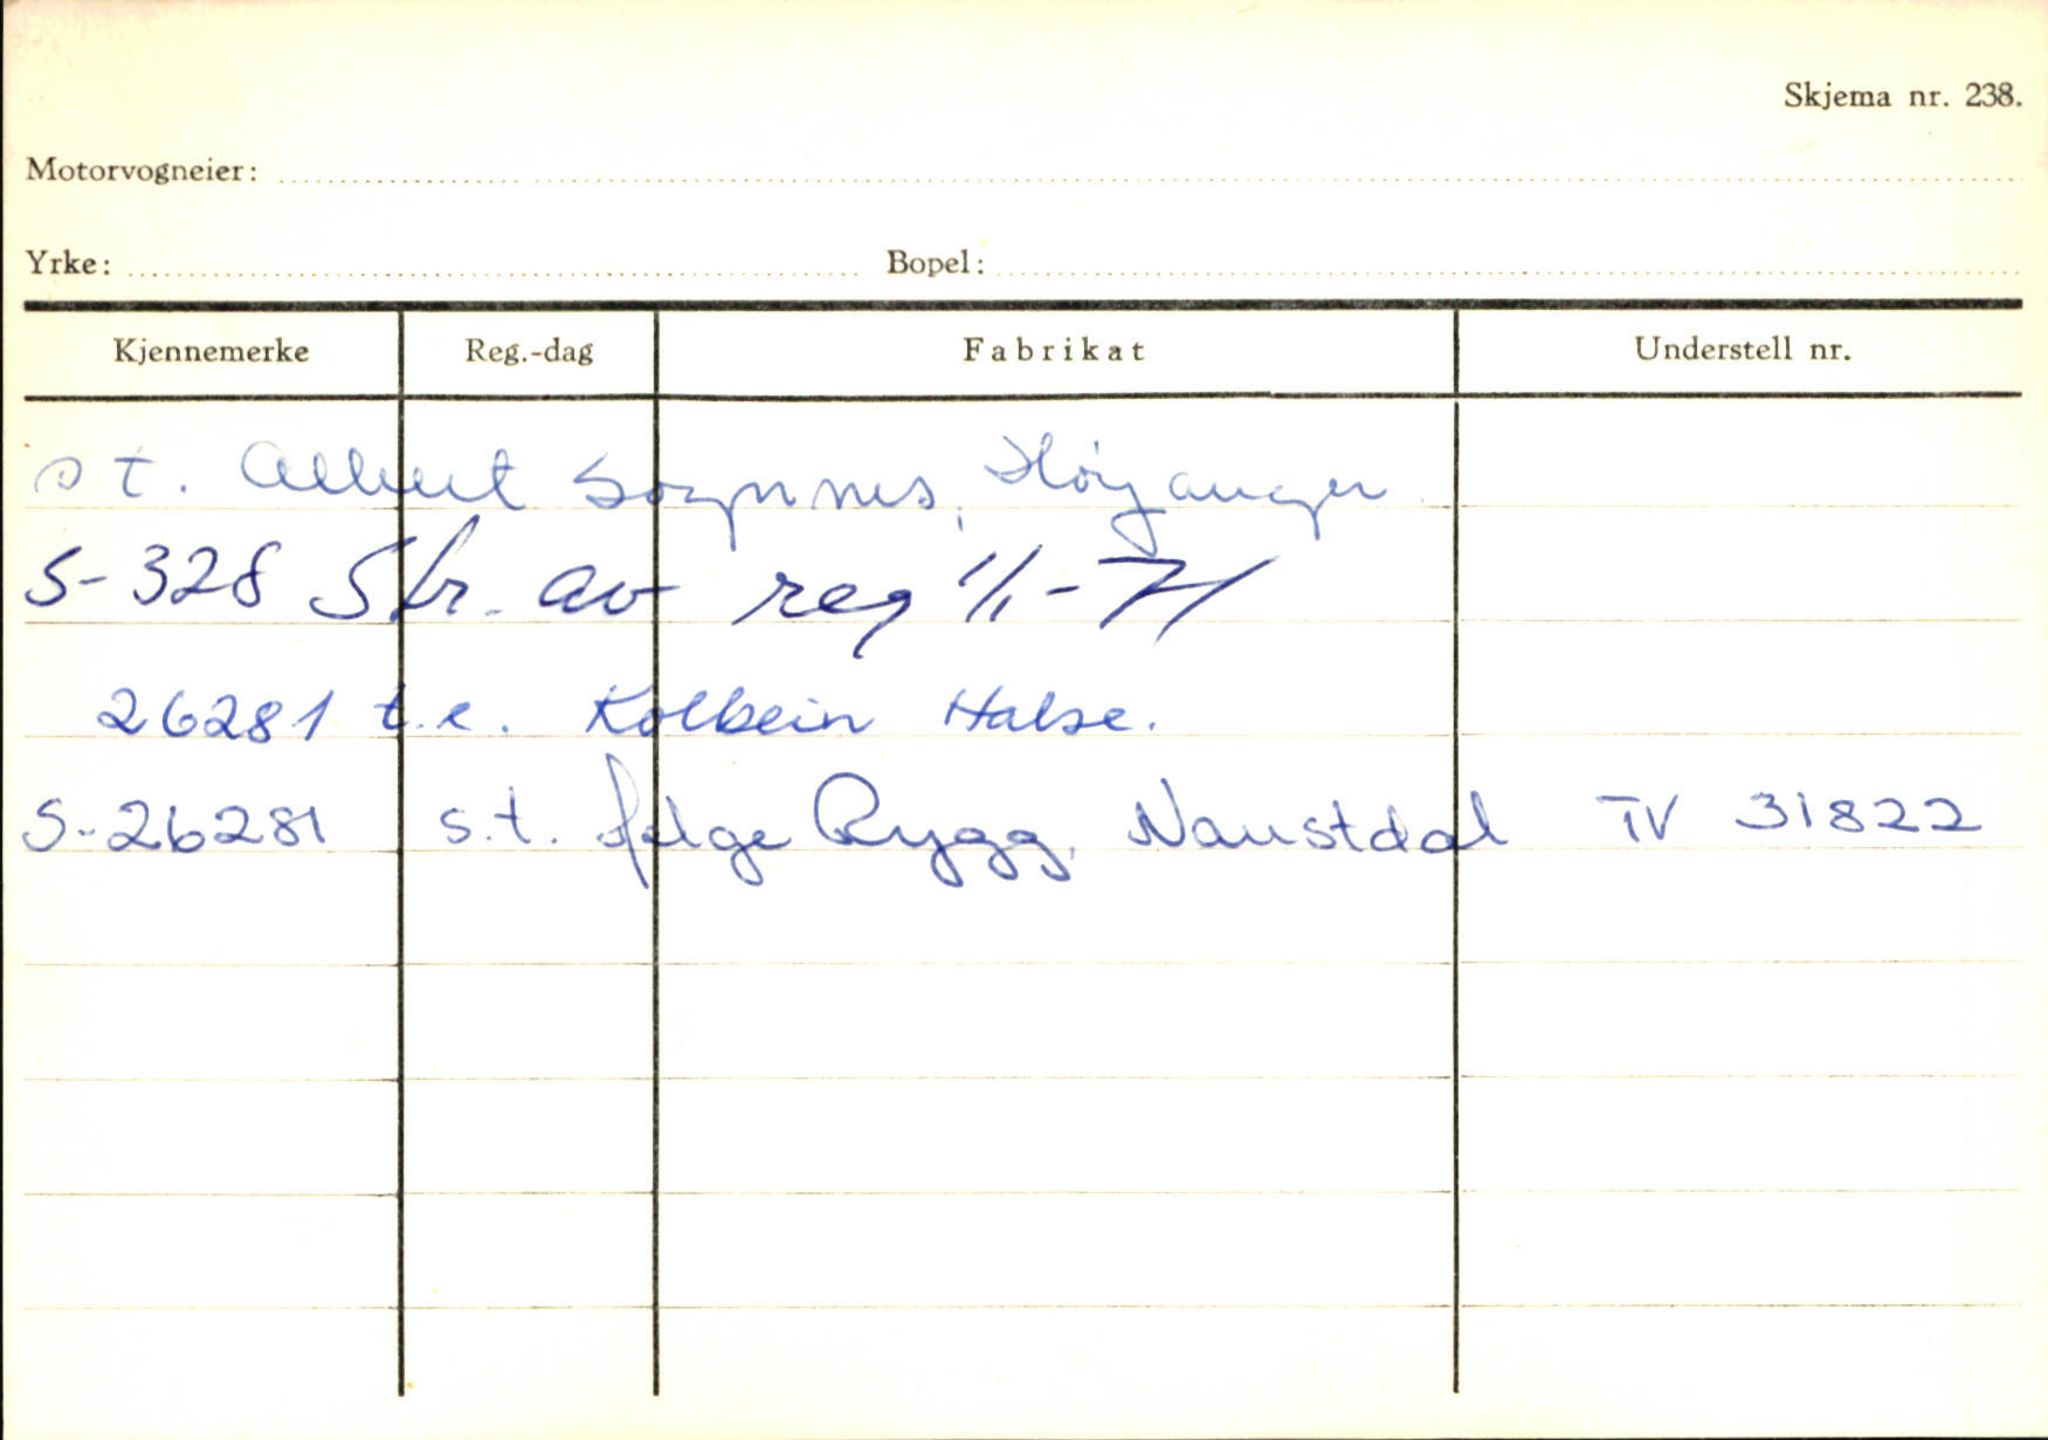 Skjema nr. 238.
Motorvogneier:
Yrke: Bopel:
Kjennemerke Reg.-dag Fabrikat Understell nr.
s t. Albert Sognnes, Höyanger.
S-328 Str. av reg 1/1-71
26281 t.e. Kolbein Halse.
S-26281 s.t. Rygg, Naustdal TV 31822